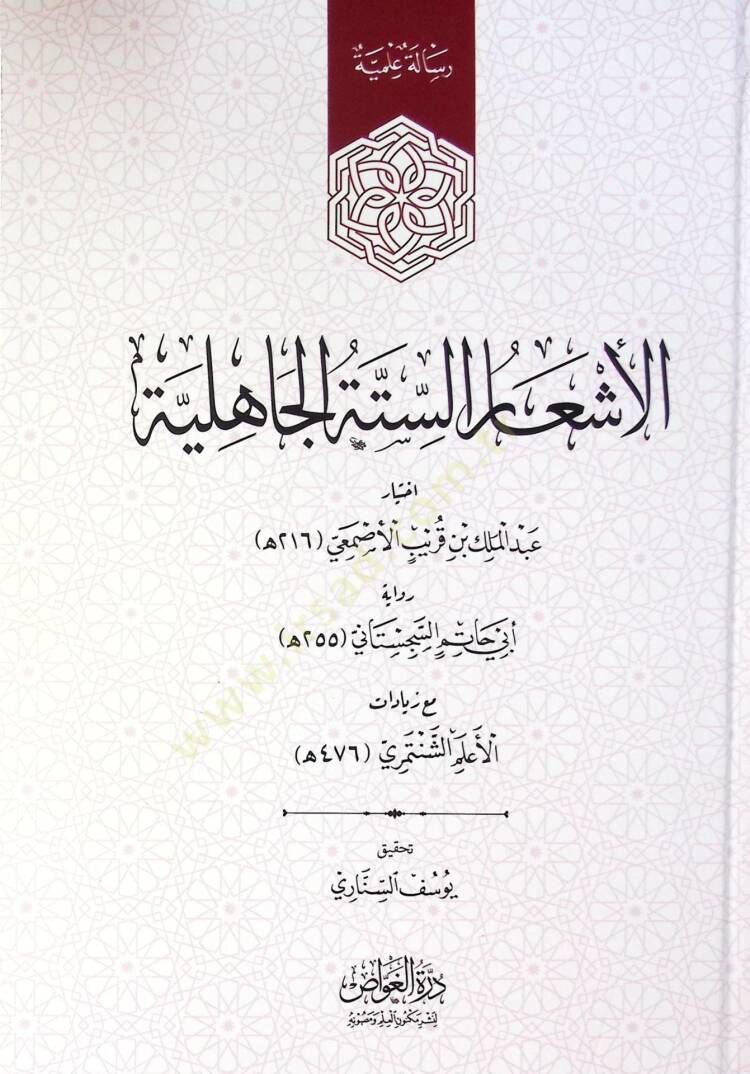 رسالة علمية
الأشعار الستة الجاهلية
اختيار
عبد الملك بن قريب الأصمعي (٢١٦هـ)
رواية
أبي حاتم السجستاني (٢٥٥هـ)
مع زيادات
الأعلم الشنتمري (٤٧٦هـ)
تحقيق
يوسف السناري
درة الغواص
لنشر مكنون العلم ومصونه